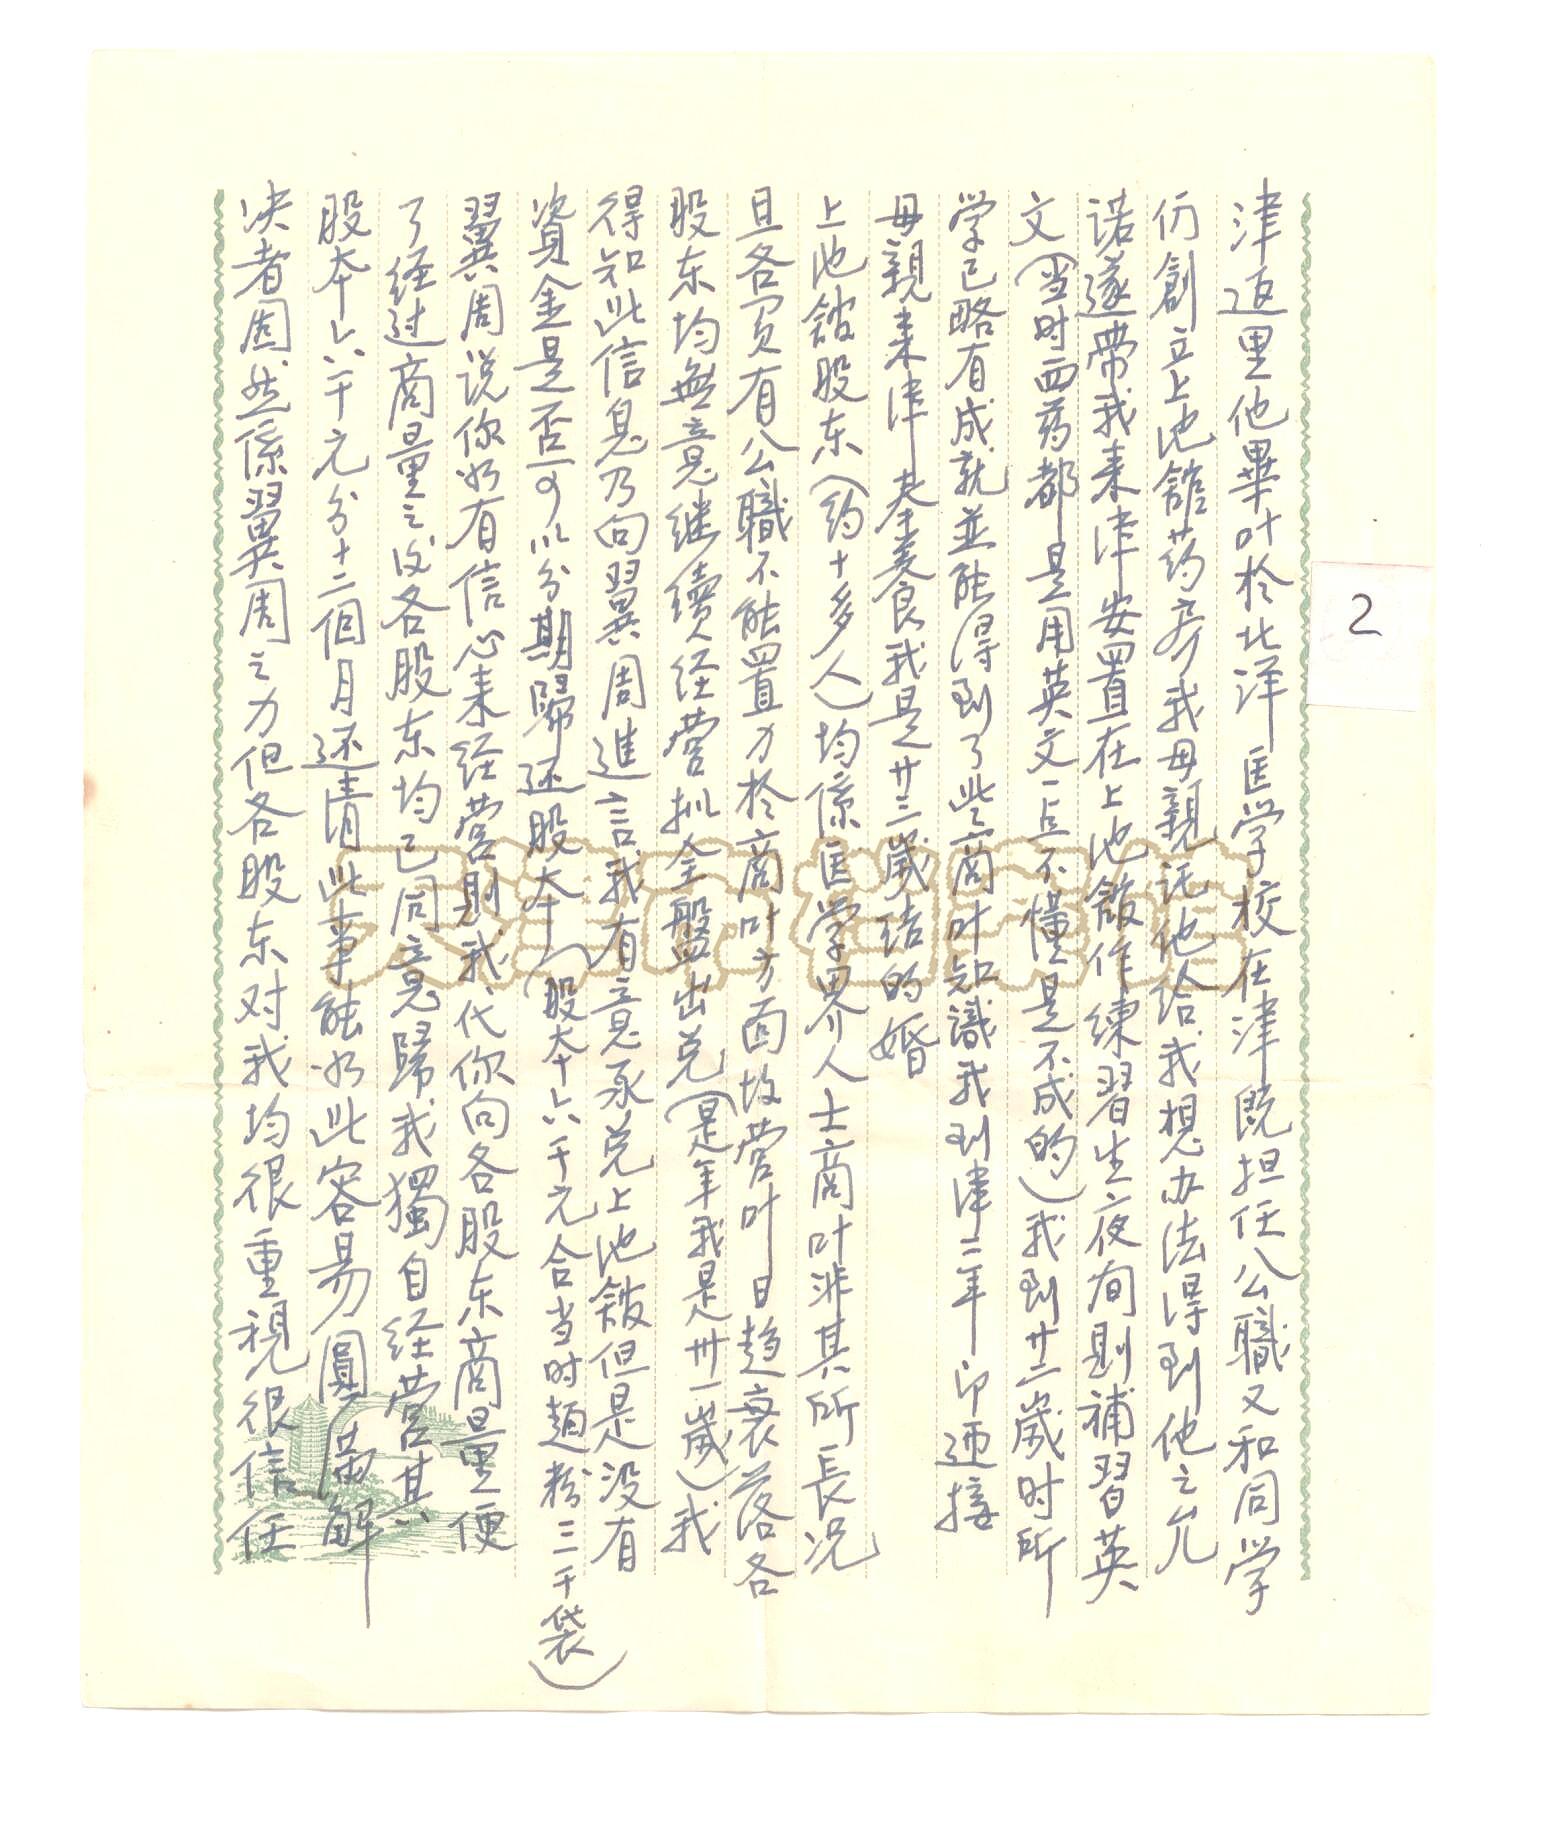 津返里他畢叶於北洋医学校在津既担任公職又和同学
仿創立上池舘葯房我母親託他给我想办法得到他之允
诺遂帶我来津安置在上池舘作練習生夜间则補習英
文(当时西葯都是用英文一点不懂是不成的)我到廿二歲时所
学已略有成就並能得到了些商叶知識我到津二年卽迊接
母親来津基養良我是廿三歲结的婚
上池舘股东(约十多人)均係医学界人士商叶非其所長况
且各負有公職不能置力於商叶方面故营叶日趋衰落各
股东均無意继續经营拟全盤出兑(是年我是卅一歲)我
得知此信息乃向翼周進言我有意承兑上池舘但是没有
資金是否可以分期歸还股本(股本六千元合当时麺粉三千袋)
翼周说你如有信心来经营则我代你向各股东商量便
了经过商量之後各股东均已同意歸我獨自经营其
股本六千元分十二個月还清此事能如此容易圓满解
决者固然係翼周之力但各股东对我均很重視很信任
2